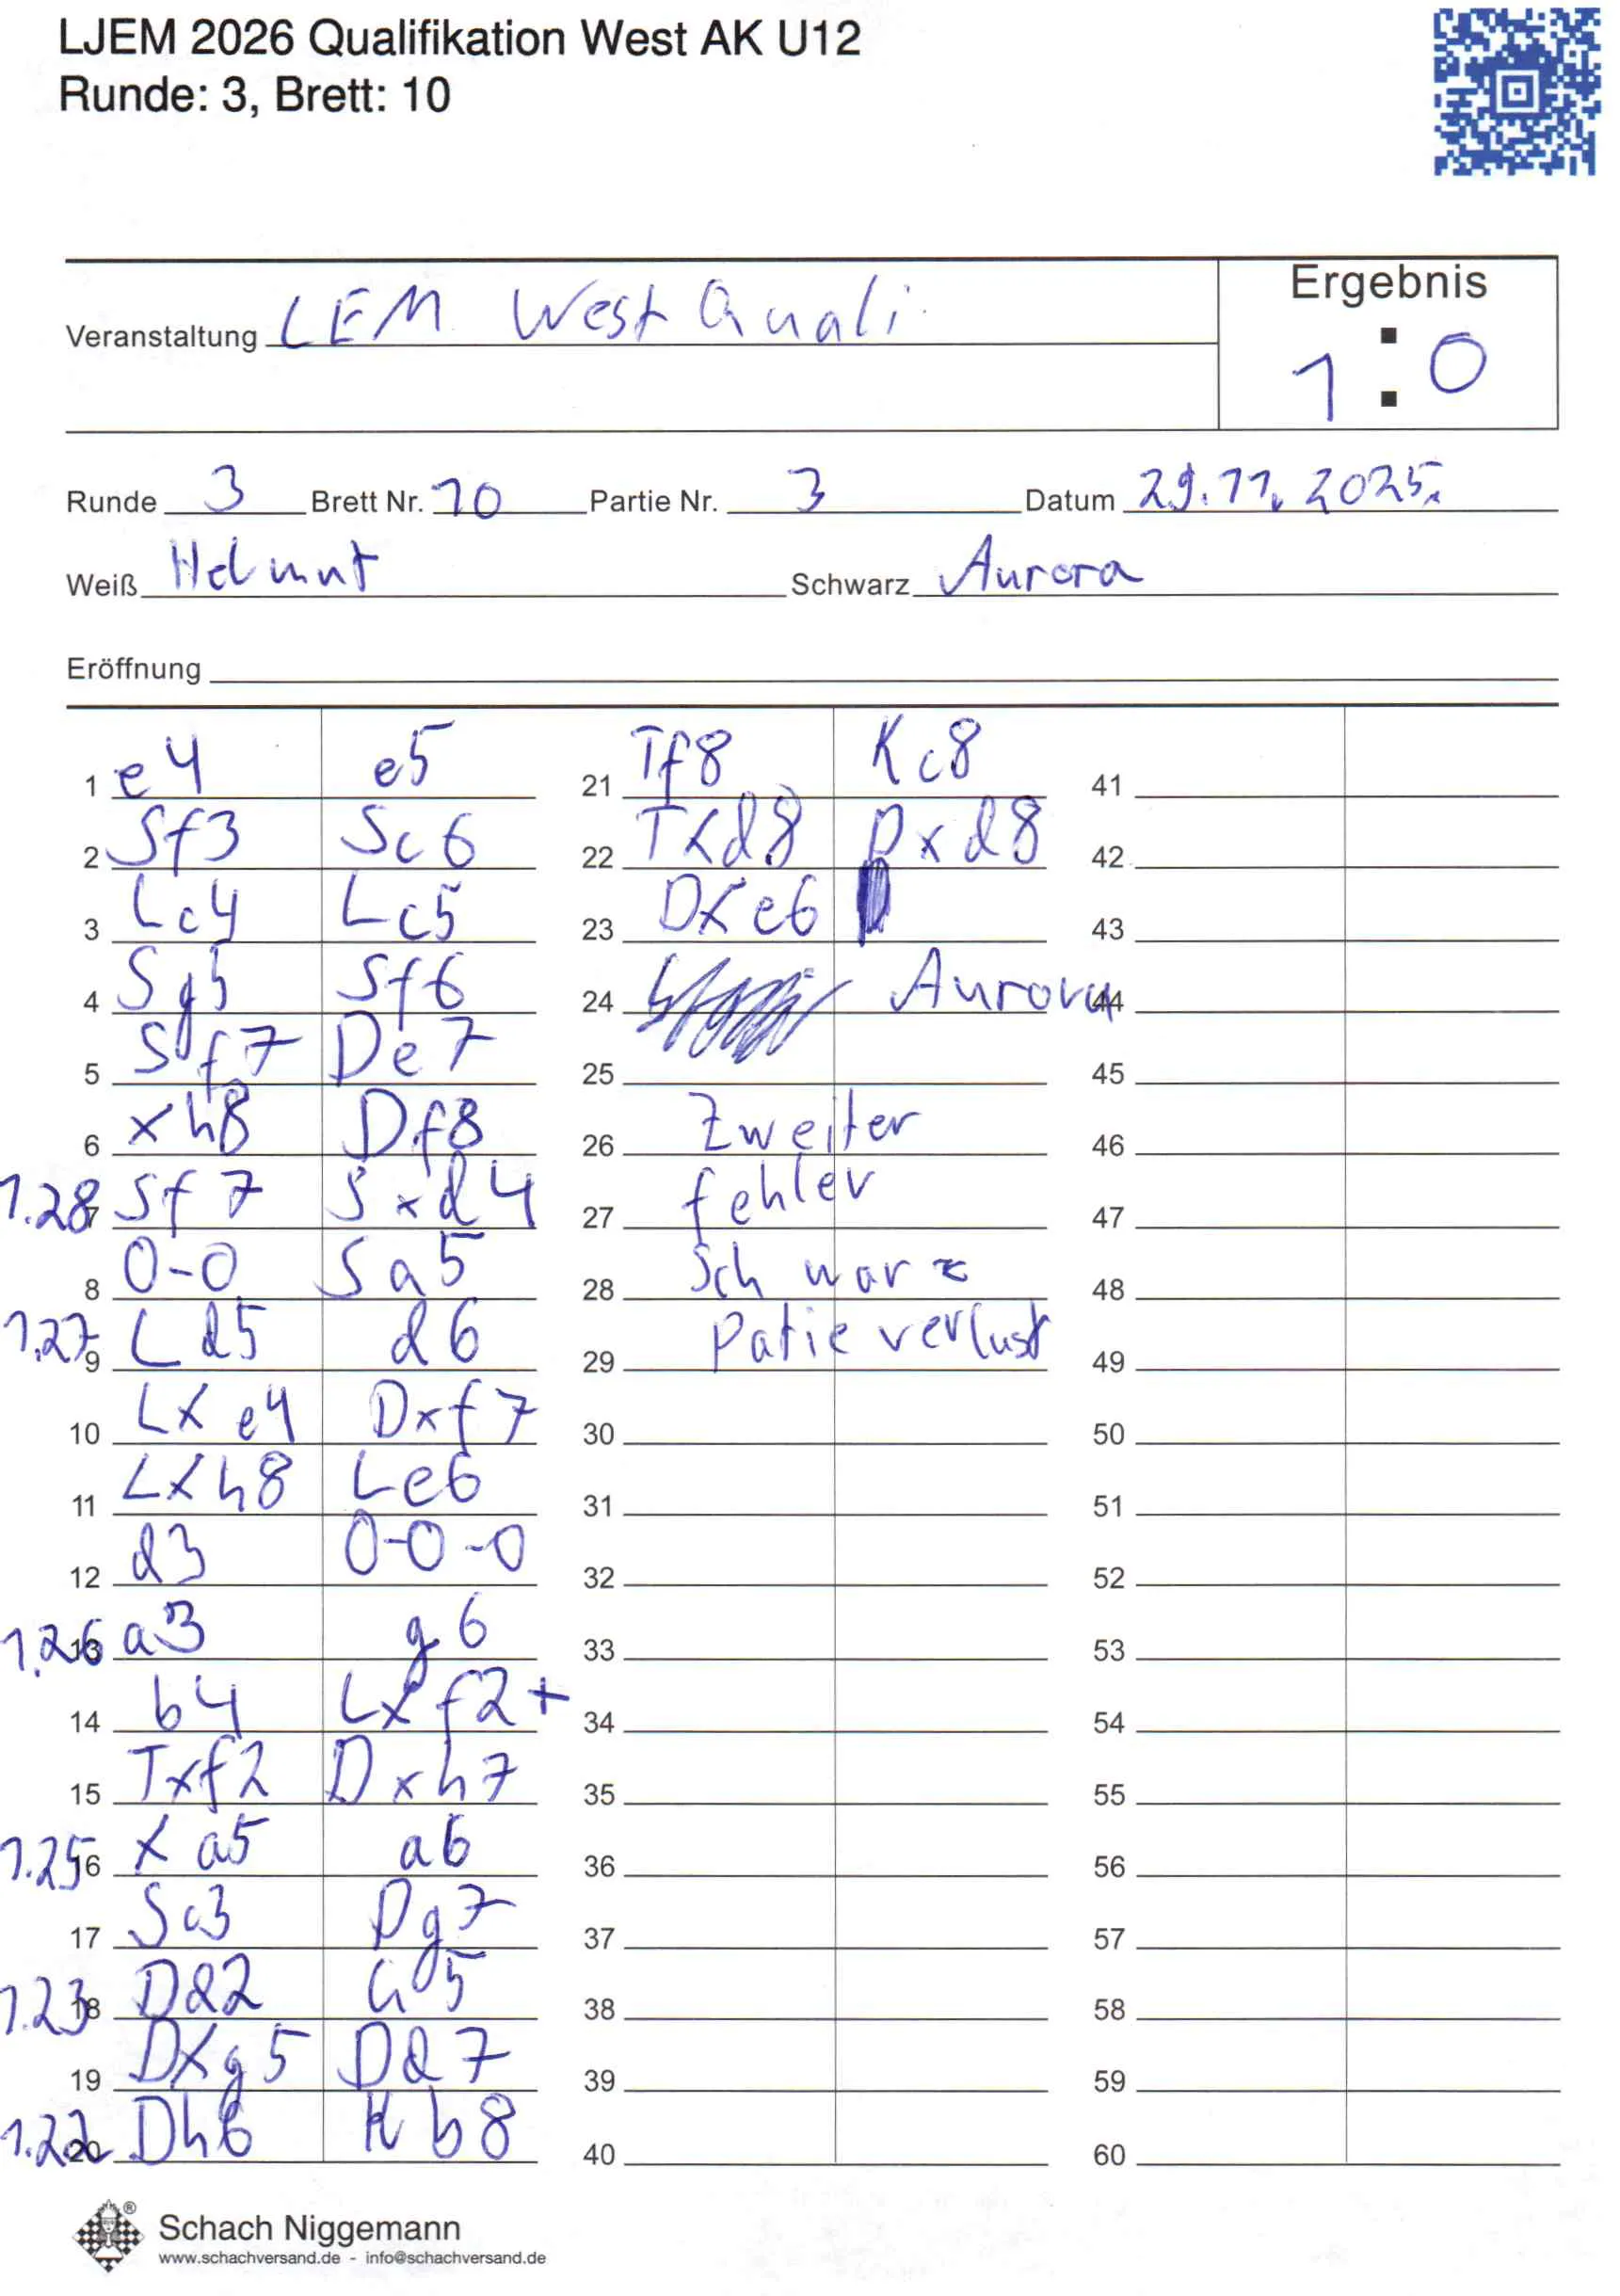 LJEM 2026 Qualifikation West AK U12
Runde: 3, Brett: 10
Ergebnis
Veranstaltung LEM West Quali
1 : 0
Runde 3 Brett Nr. 10 Partie Nr. 3 Datum 29.11.2025.
Weiß Helmut Schwarz Aurora
Eröffnung
1 e4 e5
2 Sf3 Sc6
3 Lc4 Lc5
4 Sg5 Sf6
5 Sf7 De7
6 xh8 Df8
1.28 7 Sf7 Sxd4
8 0-0 Sa5
1.27 9 Ld5 d6
10 Lxe4 Dxf7
11 Lxh8 Le6
12 d3 0-0-0
1.26 13 a3 g6
14 b4 Lxf2+
15 Txf2 Dxh7
1.25 16 xa5 a6
17 Sc3 Dg7
1.23 18 Dd2 G5
19 Dxg5 Dd7
1.22 20 Dh6 Kb8
21 Tf8 Kc8
22 Txd8 Dxd8
23 Dxe6
24 Aurora
25
26 Zweiter
27 fehler
28 Schwarz
29 Patie verlust
30
31
32
33
34
35
36
37
38
39
40
41
42
43
44
45
46
47
48
49
50
51
52
53
54
55
56
57
58
59
60
Schach Niggemann
www.schachversand.de - info@schachversand.de